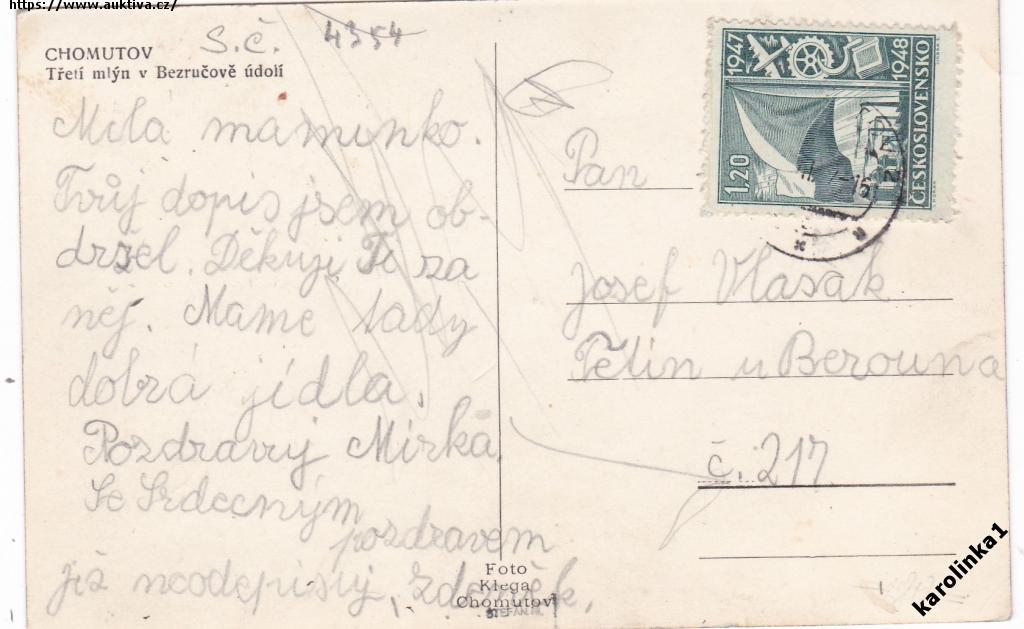 https://www.auktiva.cz/
S.č. 4354
CHOMUTOV
Třetí mlýn v Bezručově údolí
Milá maminko.
Tvůj dopis jsem ob-
držel. Děkuji Ti za
něj. Máme tady
dobrá jídla.
Pozdravuj Mirka
Se Srdecným
pozdravem
již neodepisuj, Zdeněk,
Foto
Klega
Chomutov
1947 1948
ČESKOSLOVENSKO
1.20
Pan
Josef Vlasák
Tetín u Berouna
č. 217
karolinka1